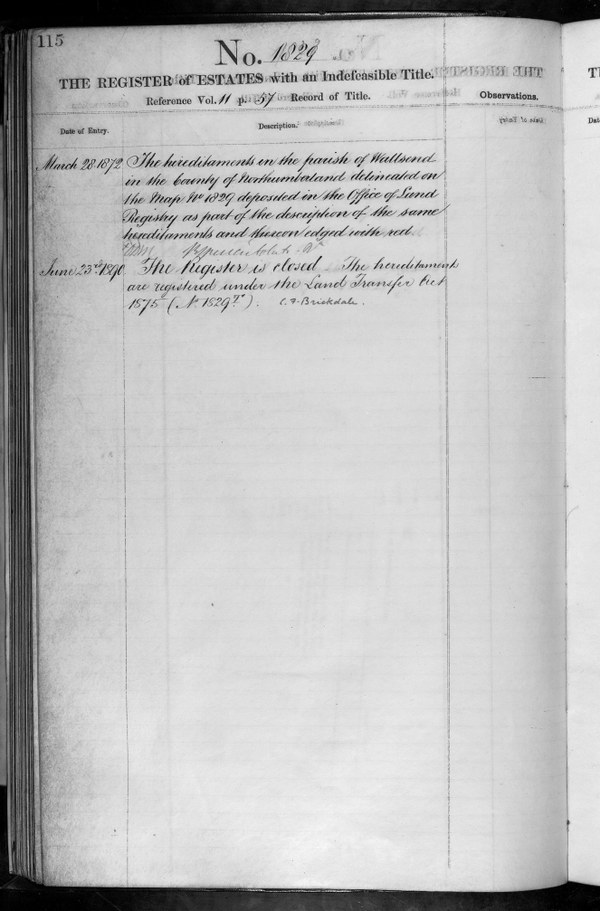 115
No. 1829
THE REGISTER of ESTATES with an Indefeasible Title.
Reference Vol. 11 p. 57 Record of Title.
Observations.
Date of Entry.
Description.
March 28. 1872 The hereditaments in the parish of Wallsend
in the County of Northumberland delineated on
the Map No 1829 deposited in the Office of Land
Registry as part of the description of the same
hereditaments and thereon edged with red
June 23rd 1890 The Register is closed. The hereditament
are registered under the Land Transfer Act
1875 (No 1829). C. F. Brickdale.
THE REGISTER
Date of Entry
T
Dat